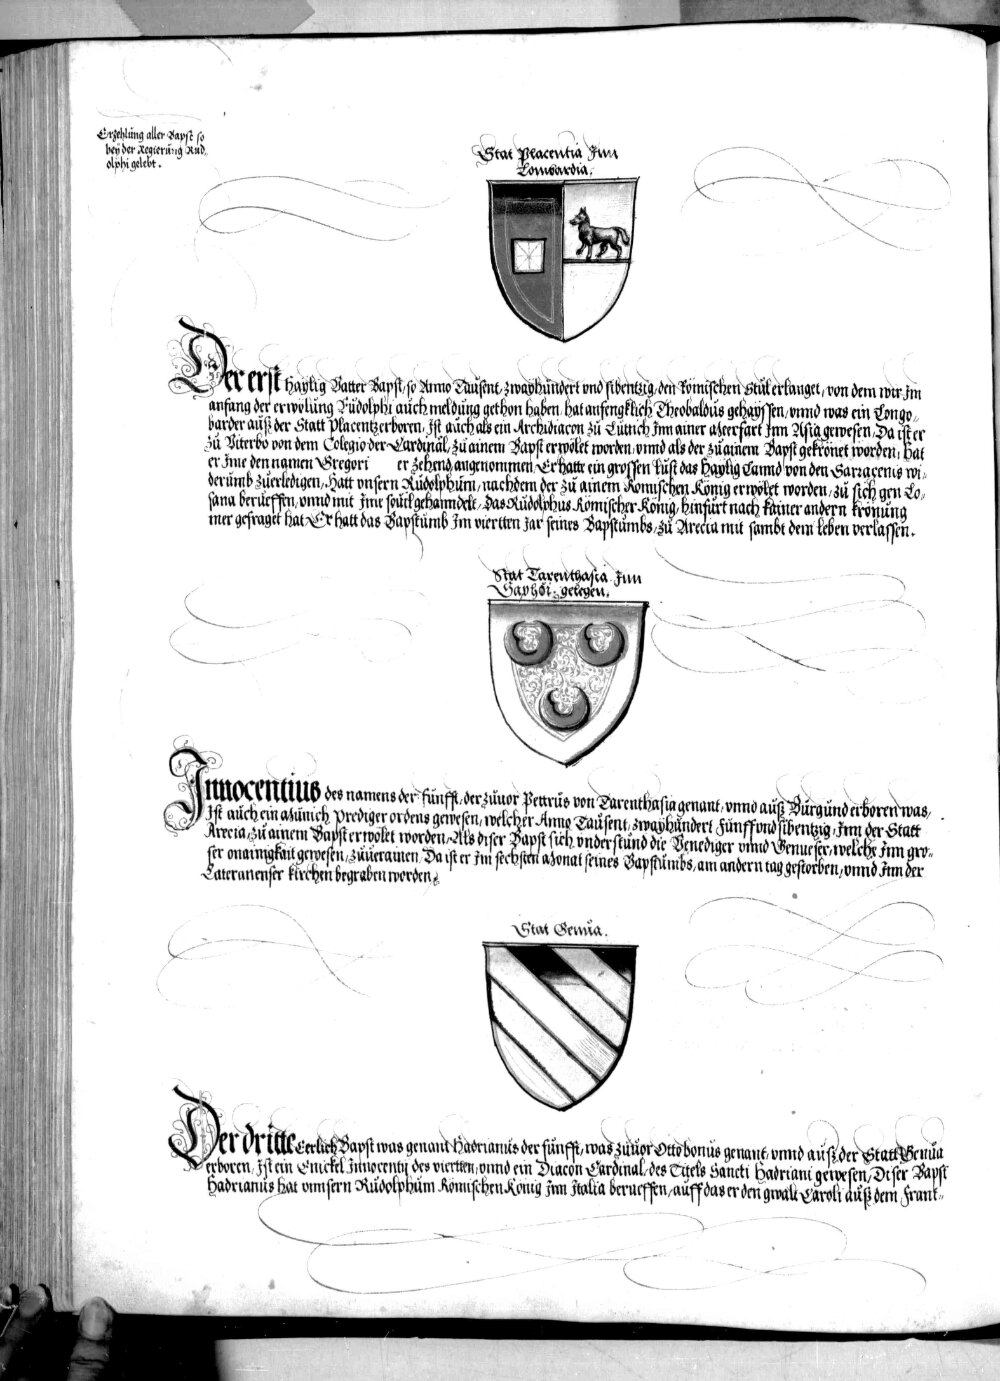 Erzehlung aller Bapst so
bey der Regierung Rud-
olphi gelebt.
Stat Placentia Inn
Lombardia.
Der erst Haylig Vatter Bapst, so Anno Tausent, zwayhundert vnd sibentzig, den Römischen Stul erlanget, von dem wir Im
anfang der erwölung Rudolphi auch meldung gethon haben, hat anfengklich Theobaldus gehayssen, vnnd was ein Longo-
barder auß der Statt Placentz erboren, Ist auch als ein Archidiacon zu Lüttich Inn ainer Meerfart Inn Asia gewesen, Da ist er
zu Viterbo von dem Colegio der Cardinäl, zu ainem Bapst erwölet worden, vnnd als der zu ainem Bapst gekrönet worden, hat
er Ime den namen Gregori er zehend angenommen, Er hatte ein grossen lust das Haylig Lannd von den Sarracenis wi-
derumb zuerledigen, Hatt vnsern Rudolphum, nachdem der zu ainem Römischen König erwölet worden, zu sich gen Lo-
sana berueffen, vnnd mit Ime souil gehanndelt, Das Rudolphus Römischer König, hinfurt nach kainer andern krönung
mer gefraget hat, Er hatt das Bapstumb Im viertten Jar seines Bapstumbs, zu Arecia mit sambt dem leben verlassen.
Stat Tarenthasia Inn
Saphoi gelegen.
Innocentius des namens der fünfft, der zuuor Pettrus von Tarenthasia genant, vnnd auß Burgund erboren was,
Ist auch ein Münich Prediger ordens gewesen, welcher Anno Tausent, zwayhundert fünff vnd sibentzig, Inn der Statt
Arecia, zu ainem Bapst erwölet worden, Als diser Bapst sich vnderstund die Venediger vnnd Genueser, welche Inn gro-
ser onainigkait gewesen, zuuerainen, Da ist er Im sechsten Monat seines Bapstumbs, am andern tag gestorben, vnnd Inn der
Lateranenser kirchen begraben worden.
Stat Genua.
Der dritte Eerlich Bapst was genant Hadrianus der fünfft, was zuuor Ottobonus genant, vnnd auß der Statt Genua
erboren, Ist ein Enickel Innocentij des viertten, vnnd ein Diacon Cardinal, des Titels Sancti Hadriani gewesen, Diser Bapst
Hadrianus hat vnnsern Rudolphum Römischen König Inn Italia berueffen, auff das er den gwalt Caroli auß dem Frank-